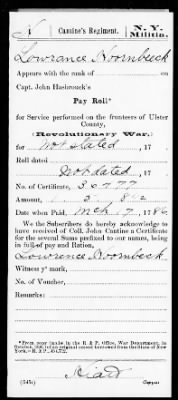 Cantine's Regiment.
N. Y. Militia.
Lowrance Hoornbeeck
Appears with the rank of
on
Capt. John Hasbrouck's
Pay Roll*
for Service performed on the frontiers of Ulster
County,
(Revolutionary War,)
for not stated, 17
Roll dated
Not dated, 17
No. of Certificate, 36777
Amount,
Date when Paid, Mch 7, 1786.
We the Subscribers do hereby acknowledge to
have received of Coll. John Cantine a Certificate
for the several Sums prefixed to our names, being
in full of pay and Ration,
Lowrence Hoornbeck
Witness y' mark,
No. of Voucher,
Remarks:
*From pay rolls in the R. & P. Office, War Department, in
(545c)
Copyist.